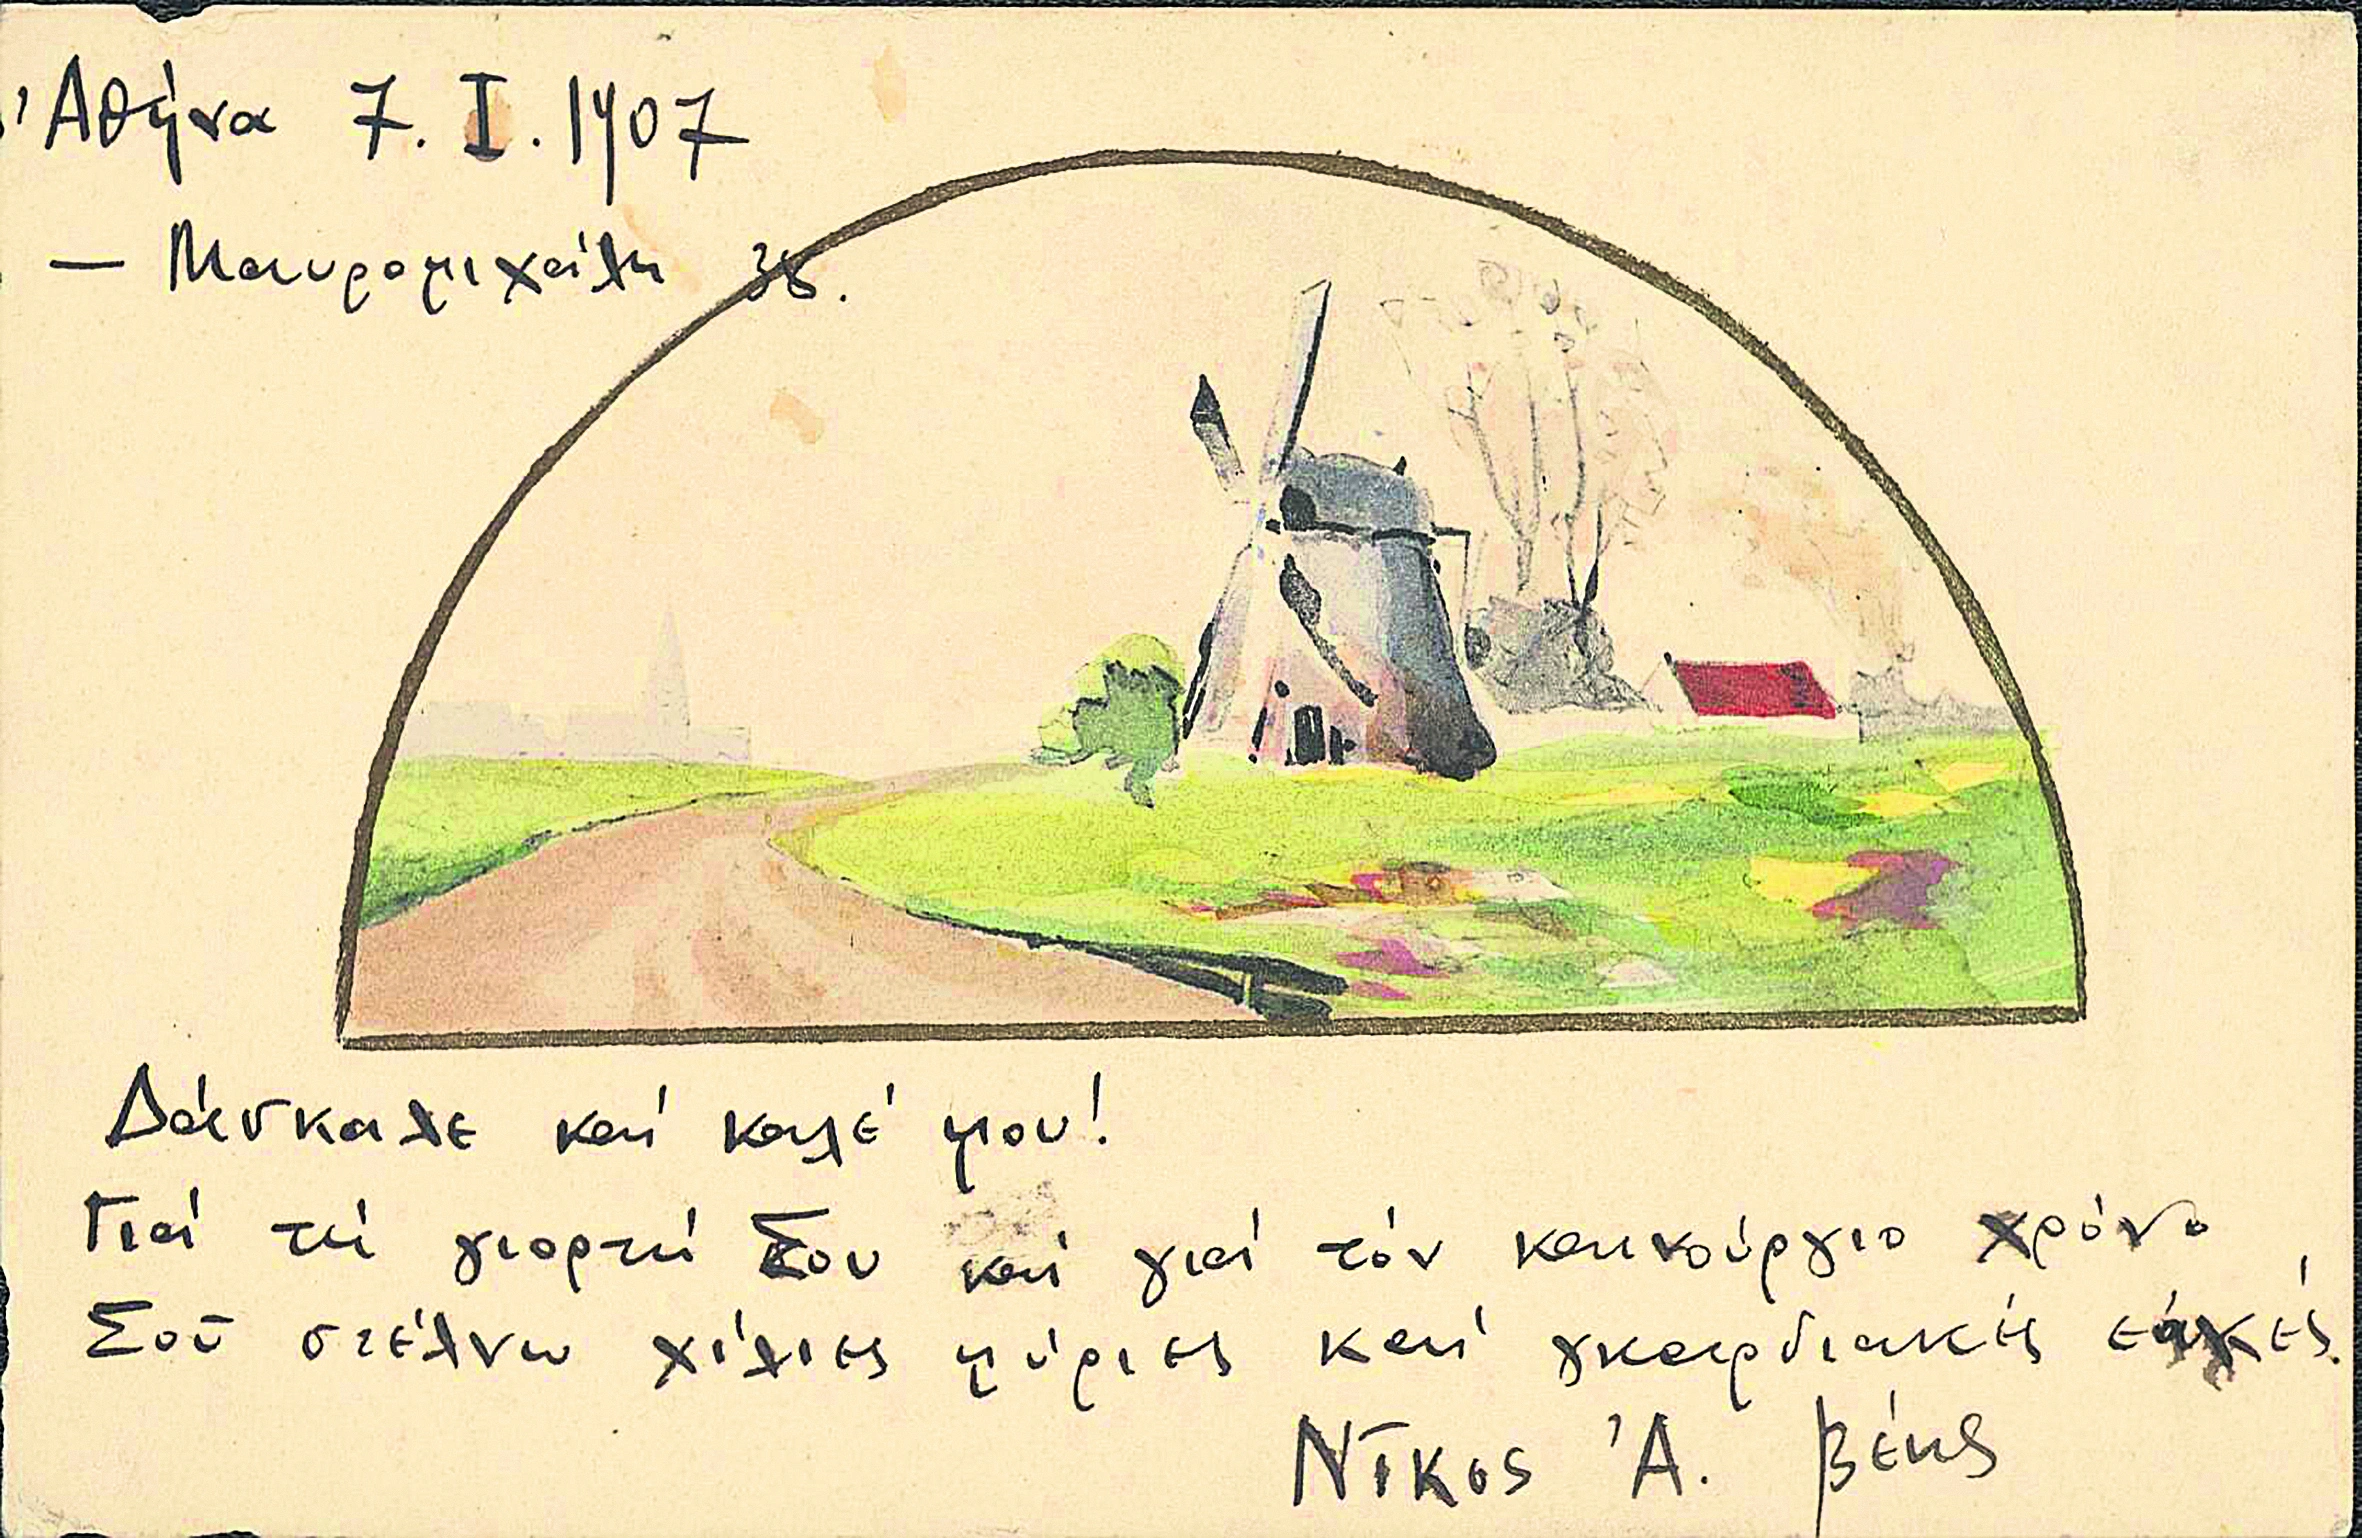 Ἀθήνα 7. I. 1907
— Μαυρομιχάλη 38.
Δάσκαλε καί καλέ μου!
Γιά τή γιορτή Σου καί γιά τόν καινούργιο χρόνο
Σοῦ στέλνω χίλιες μύριες καί γκαρδιακές εὐχές.
Νῖκος Ἀ. Βέης